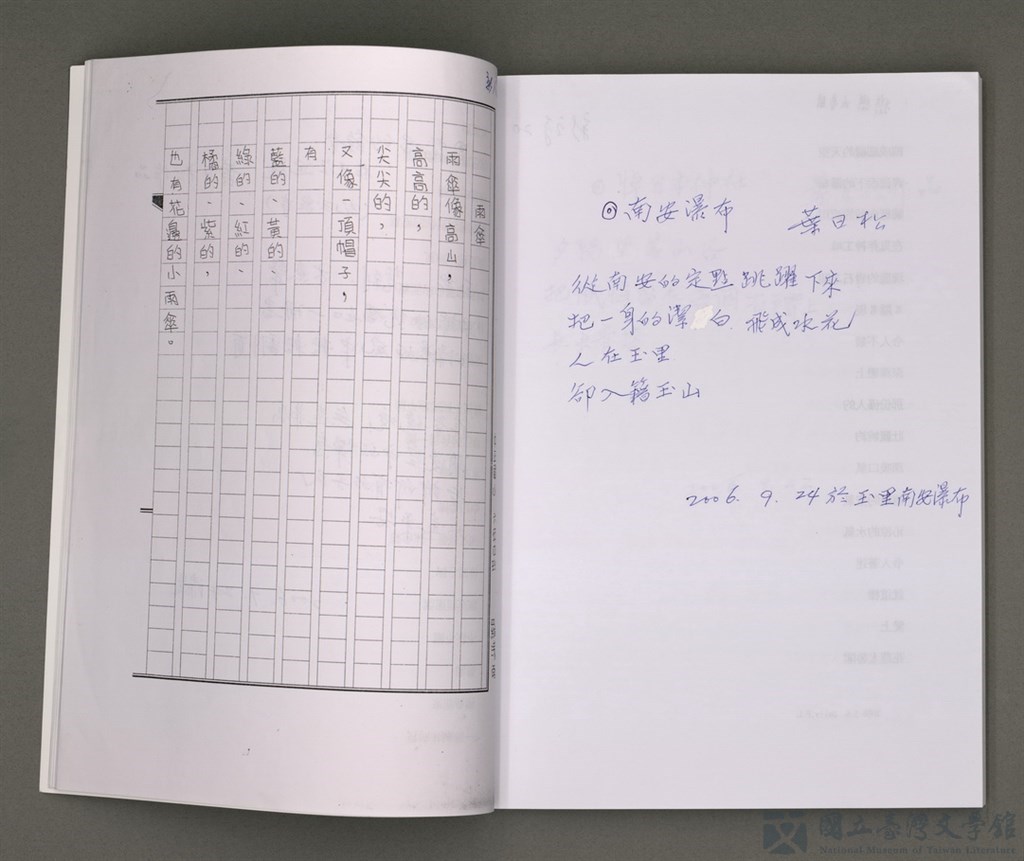 雨傘
雨傘像高山，
高高的，
尖尖的，
又像一頂帽子，
有
藍的、黃的、
綠的、紅的、
橘的、紫的，
也有花邊的小雨傘。
◎南安瀑布 葉日松
從南安的定點跳躍下來
把一身的潔白 飛成水花
人在玉里
卻入籍玉山
2006. 9. 24 於玉里南安瀑布
國立臺灣文學館
National Museum of Taiwan Literature